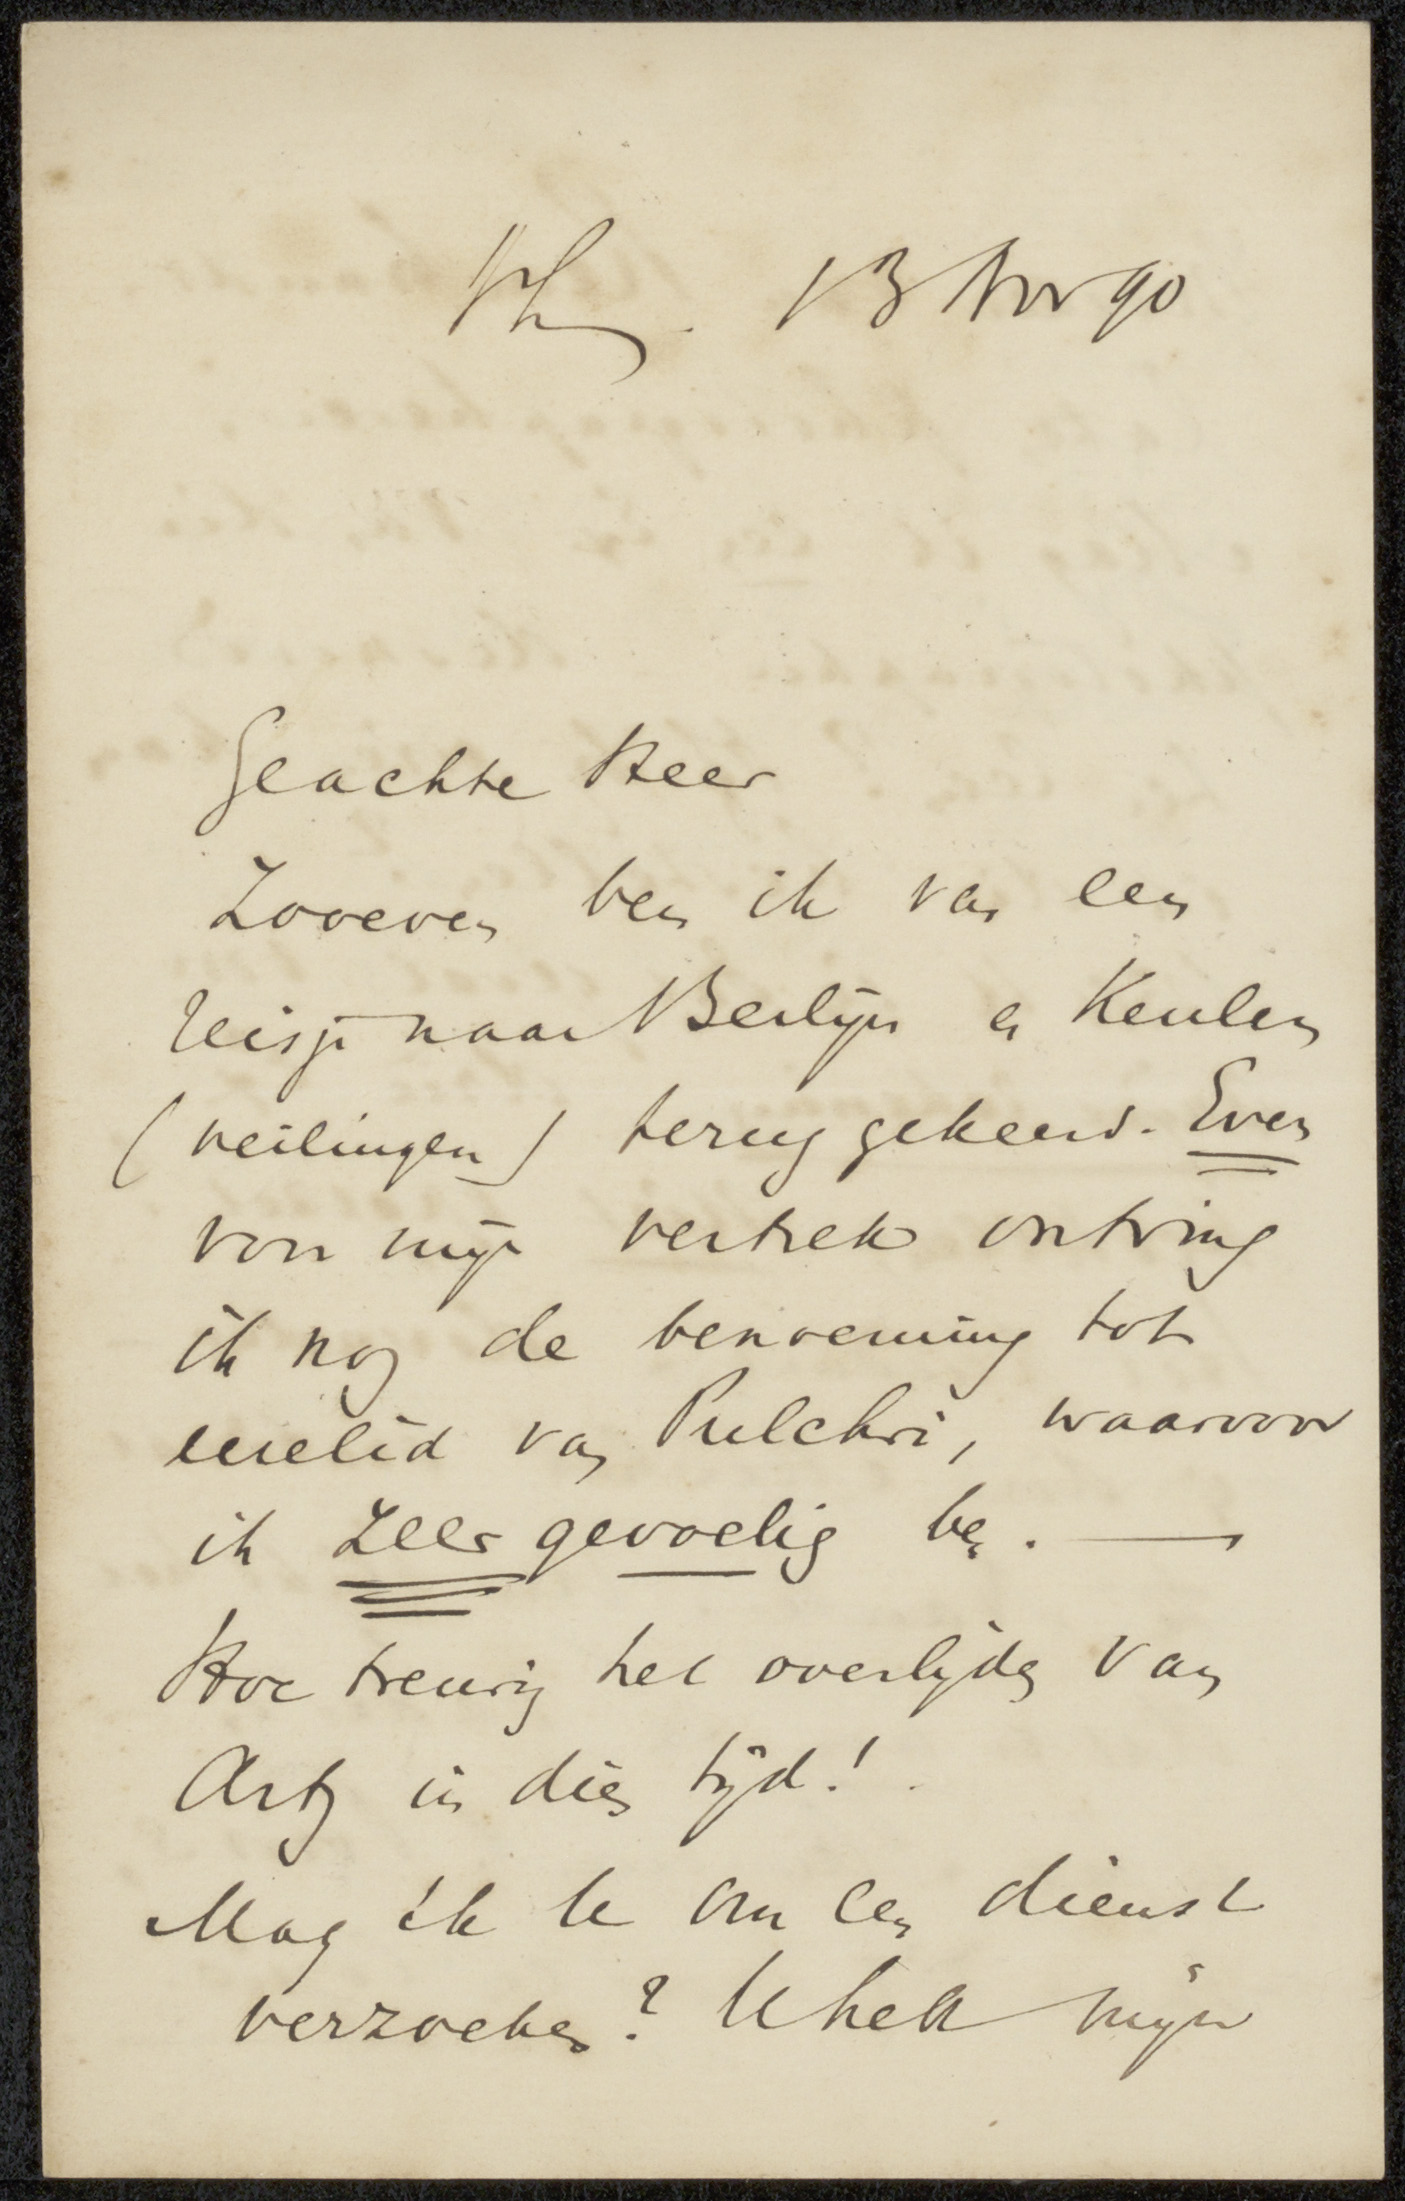 13 Nov 90
Geachte Heer
Zooeven ben ik van een
reisje naar Berlijn en Keulen
(veilingen) teruggekeerd. Even
voor mijn vertrek ontving
ik nog de benoeming tot
eerelid van Pulchri, waarvoor
ik zeer gevoelig ben. —
Hoe treurig het overlijden van
Artz in dien tijd!
Mag ik U om een dienst
verzoeken? U hebt mijn